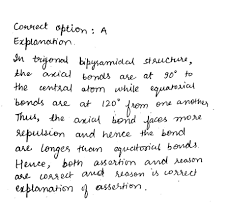 Correct option: A
Explanation.
In trigonal bipyramidal structure,
the axial bonds are at 90° to
the central atom while equatorial
bonds are at 120° from one another.
Thus, the axial bond faces more
repulsion and hence the bond
are longer than equatorial bonds.
Hence, both assertion and reason
are correct and reason is correct
explanation of assertion.